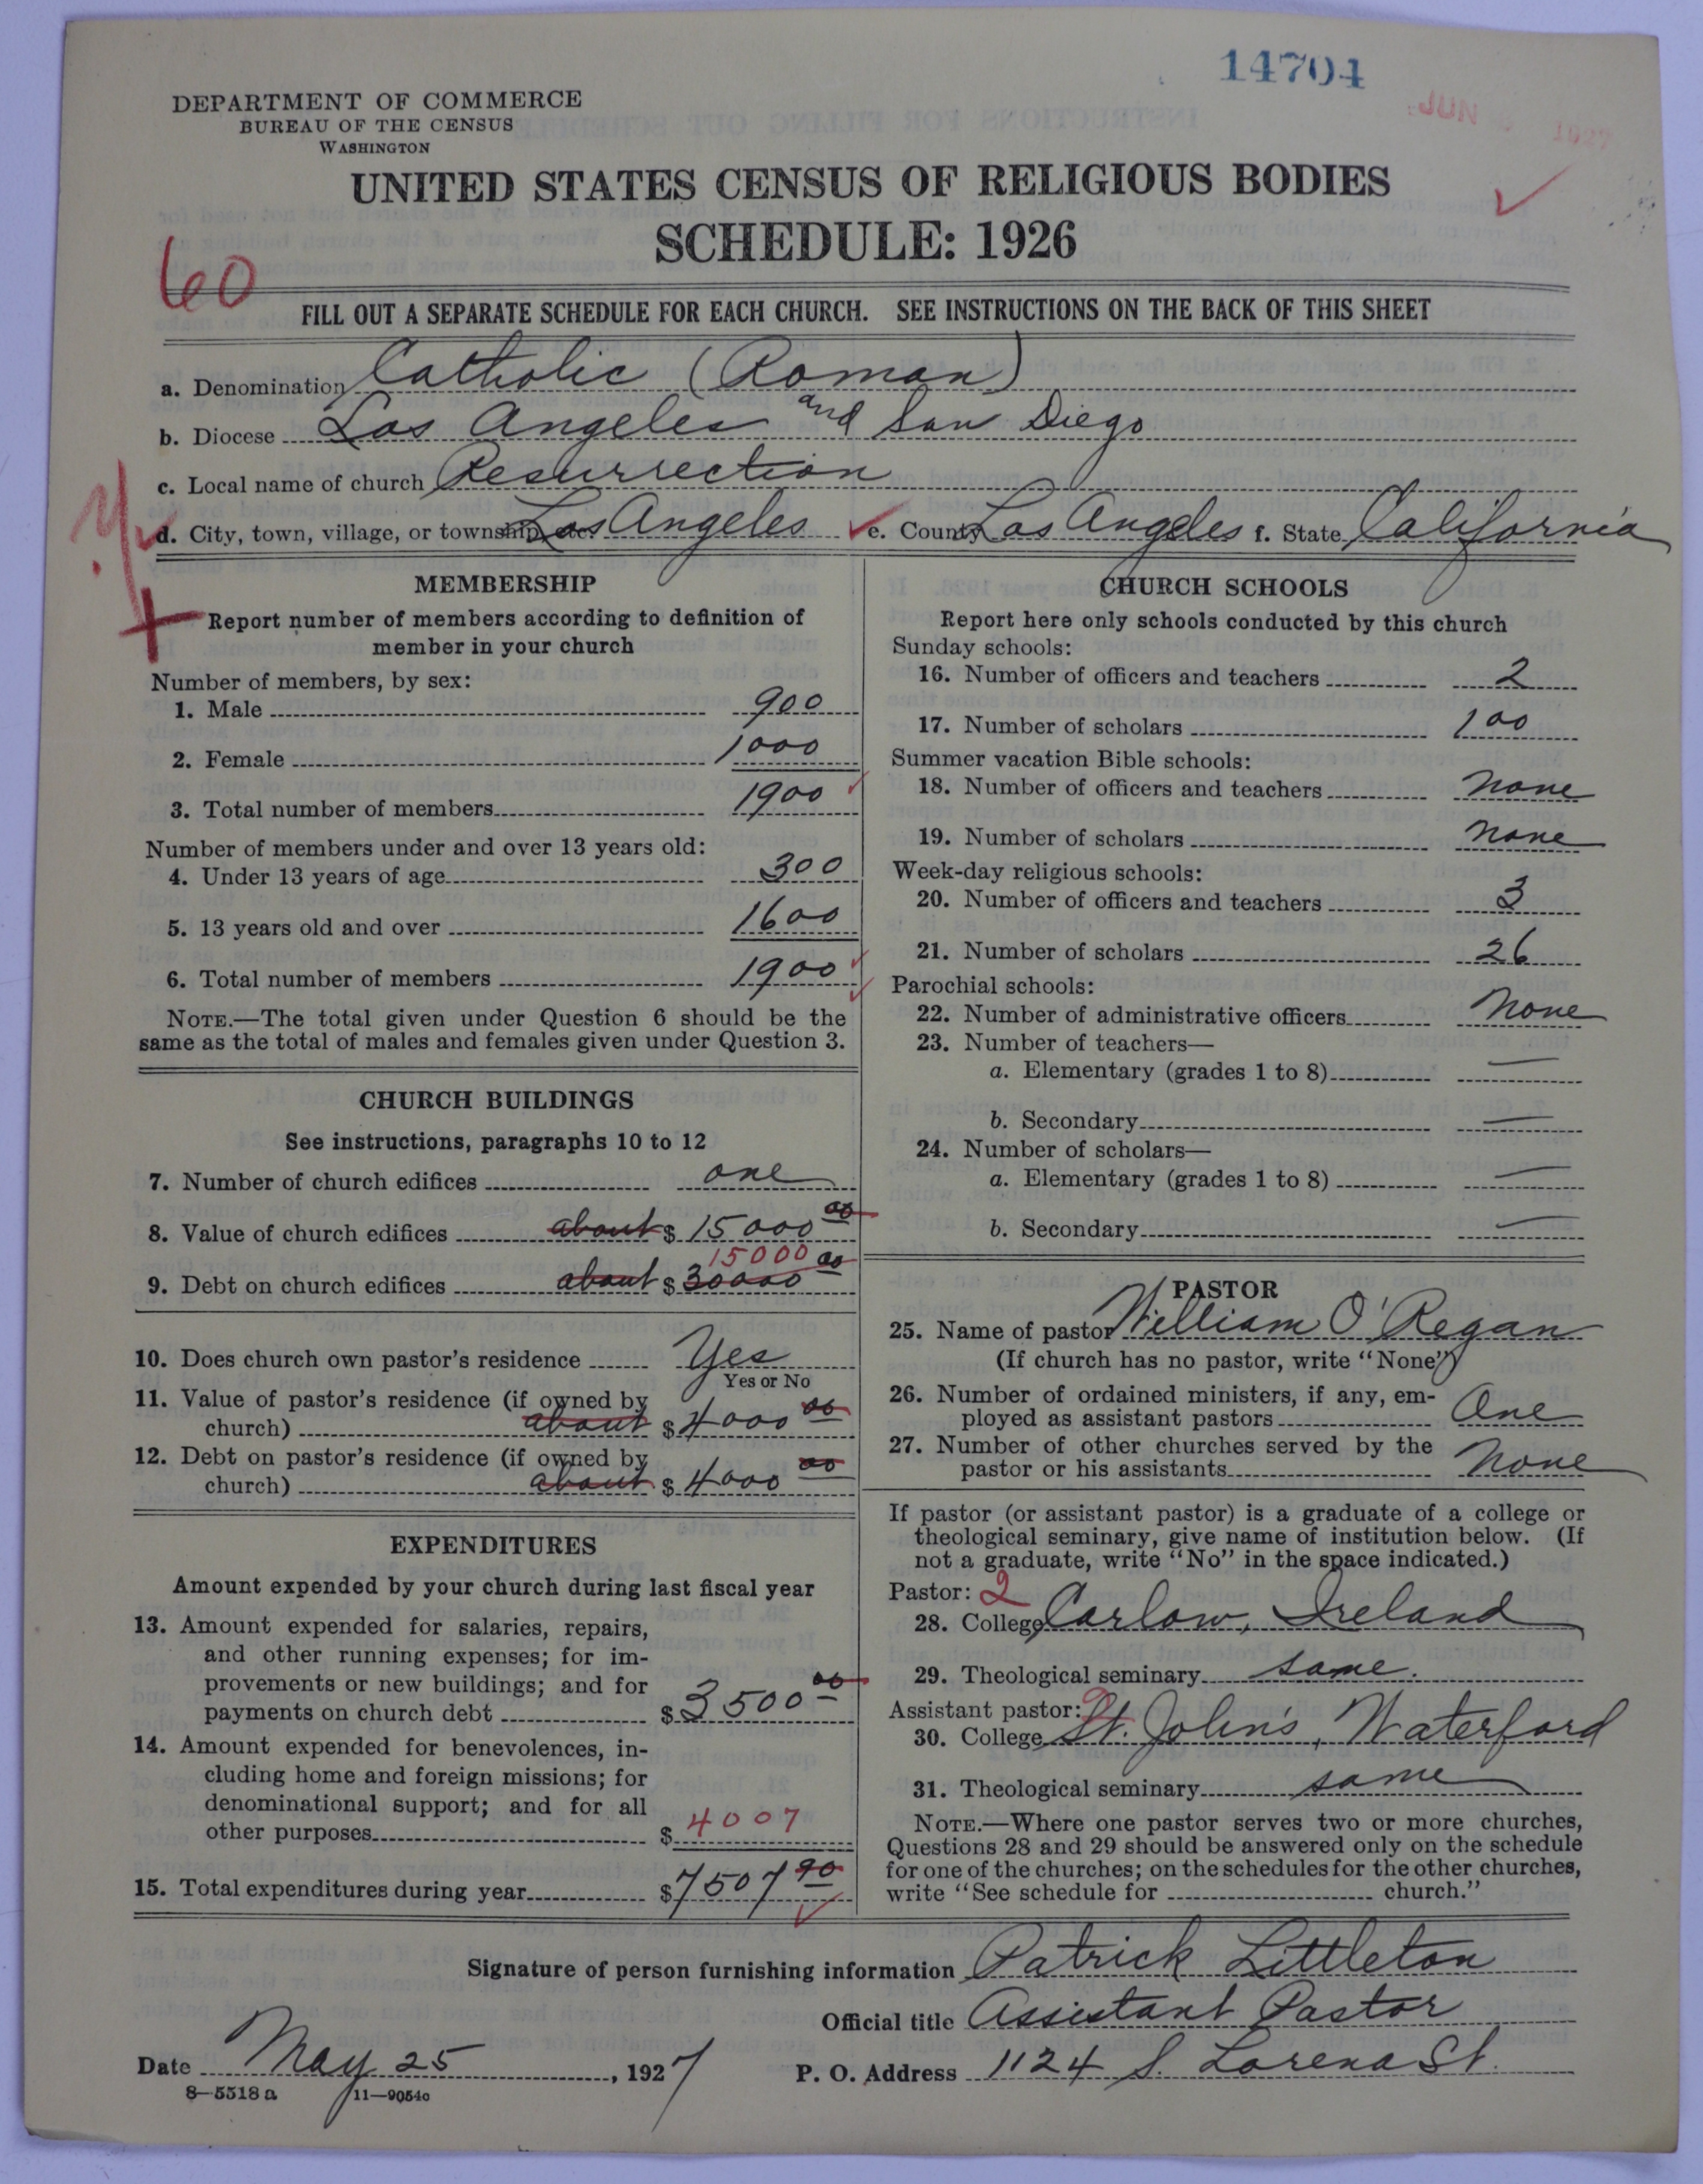 14704
JUN 1927
DEPARTMENT OF COMMERCE
BUREAU OF THE CENSUS
WASHINGTON
UNITED STATES CENSUS OF RELIGIOUS BODIES
SCHEDULE: 1926
60
FILL OUT A SEPARATE SCHEDULE FOR EACH CHURCH. SEE INSTRUCTIONS ON THE BACK OF THIS SHEET
a. Denomination Catholic (Roman)
b. Diocese Los Angeles and San Diego
c. Local name of church Resurrection
d. City, town, village, or township, etc. Los Angeles e. County Los Angeles f. State California
MEMBERSHIP
Report number of members according to definition of
member in your church
Number of members, by sex:
1. Male 900
2. Female 1000
3. Total number of members 1900
Number of members under and over 13 years old:
4. Under 13 years of age 300
5. 13 years old and over 1600
6. Total number of members 1900
NOTE.—The total given under Question 6 should be the
same as the total of males and females given under Question 3.
CHURCH BUILDINGS
See instructions, paragraphs 10 to 12
7. Number of church edifices one
8. Value of church edifices about $ 15000 00
15000
9. Debt on church edifices about $ 30000 00
10. Does church own pastor's residence Yes
Yes or No
11. Value of pastor's residence (if owned by
church) about $ 4000 00
12. Debt on pastor's residence (if owned by
church) about $ 4000 00
EXPENDITURES
Amount expended by your church during last fiscal year
13. Amount expended for salaries, repairs,
and other running expenses; for im-
provements or new buildings; and for
payments on church debt $ 3500 00
14. Amount expended for benevolences, in-
cluding home and foreign missions; for
denominational support; and for all
other purposes $ 4007
15. Total expenditures during year $ 7507 90
CHURCH SCHOOLS
Report here only schools conducted by this church
Sunday schools:
16. Number of officers and teachers 2
17. Number of scholars 100
Summer vacation Bible schools:
18. Number of officers and teachers none
19. Number of scholars none
Week-day religious schools:
20. Number of officers and teachers 3
21. Number of scholars 26
Parochial schools:
22. Number of administrative officers none
23. Number of teachers—
a. Elementary (grades 1 to 8) —
b. Secondary —
24. Number of scholars—
a. Elementary (grades 1 to 8) —
b. Secondary —
PASTOR
25. Name of pastor William O'Regan
(If church has no pastor, write "None")
26. Number of ordained ministers, if any, em-
ployed as assistant pastors One
27. Number of other churches served by the
pastor or his assistants None
If pastor (or assistant pastor) is a graduate of a college or
theological seminary, give name of institution below. (If
not a graduate, write "No" in the space indicated.)
Pastor: 2
28. College Carlow, Ireland
29. Theological seminary same.
Assistant pastor:
30. College St. John's, Waterford
31. Theological seminary same
NOTE.—Where one pastor serves two or more churches,
Questions 28 and 29 should be answered only on the schedule
for one of the churches; on the schedules for the other churches,
write "See schedule for church."
Signature of person furnishing information Patrick Littleton
Official title Assistant Pastor
Date May 25, 1927 P. O. Address 1124 S. Lorena St.
8—5518 a 11—9054c